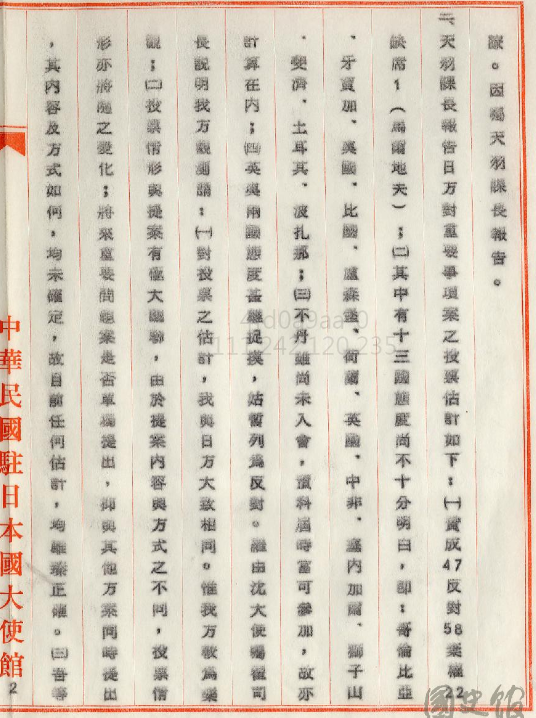 談。因囑天羽課長報告。
三、天羽課長報告日方對重要事項案之投票估計如下：㈠贊成47反對58棄權22
缺席1（馬爾地夫）；㈡其中有十三國態度尚不十分明白，即：哥倫比亞
、牙買加、奧國、比國、盧森堡、荷蘭、英國、中非、塞內加爾、獅子山
、斐濟、土耳其、波扎那；㈢不丹雖尚未入會，預料屆時當可參加，故亦
計算在內；㈣英奧兩國態度甚難捉摸，姑暫列為反對。繼由沈大使囑翟司
長說明我方觀測謂：㈠對投票之估計，我與日方大致相同。惟我方較為樂
觀；㈡投票情形與提案有極大關聯，由於提案內容與方式之不同，投票情
形亦將隨之變化；將來重要問題案是否單獨提出，抑與其他方案同時提出
，其內容及方式如何，均未確定，故目前任何估計，均難臻正確。㈢吾等
中華民國駐日本國大使館
2
國史館